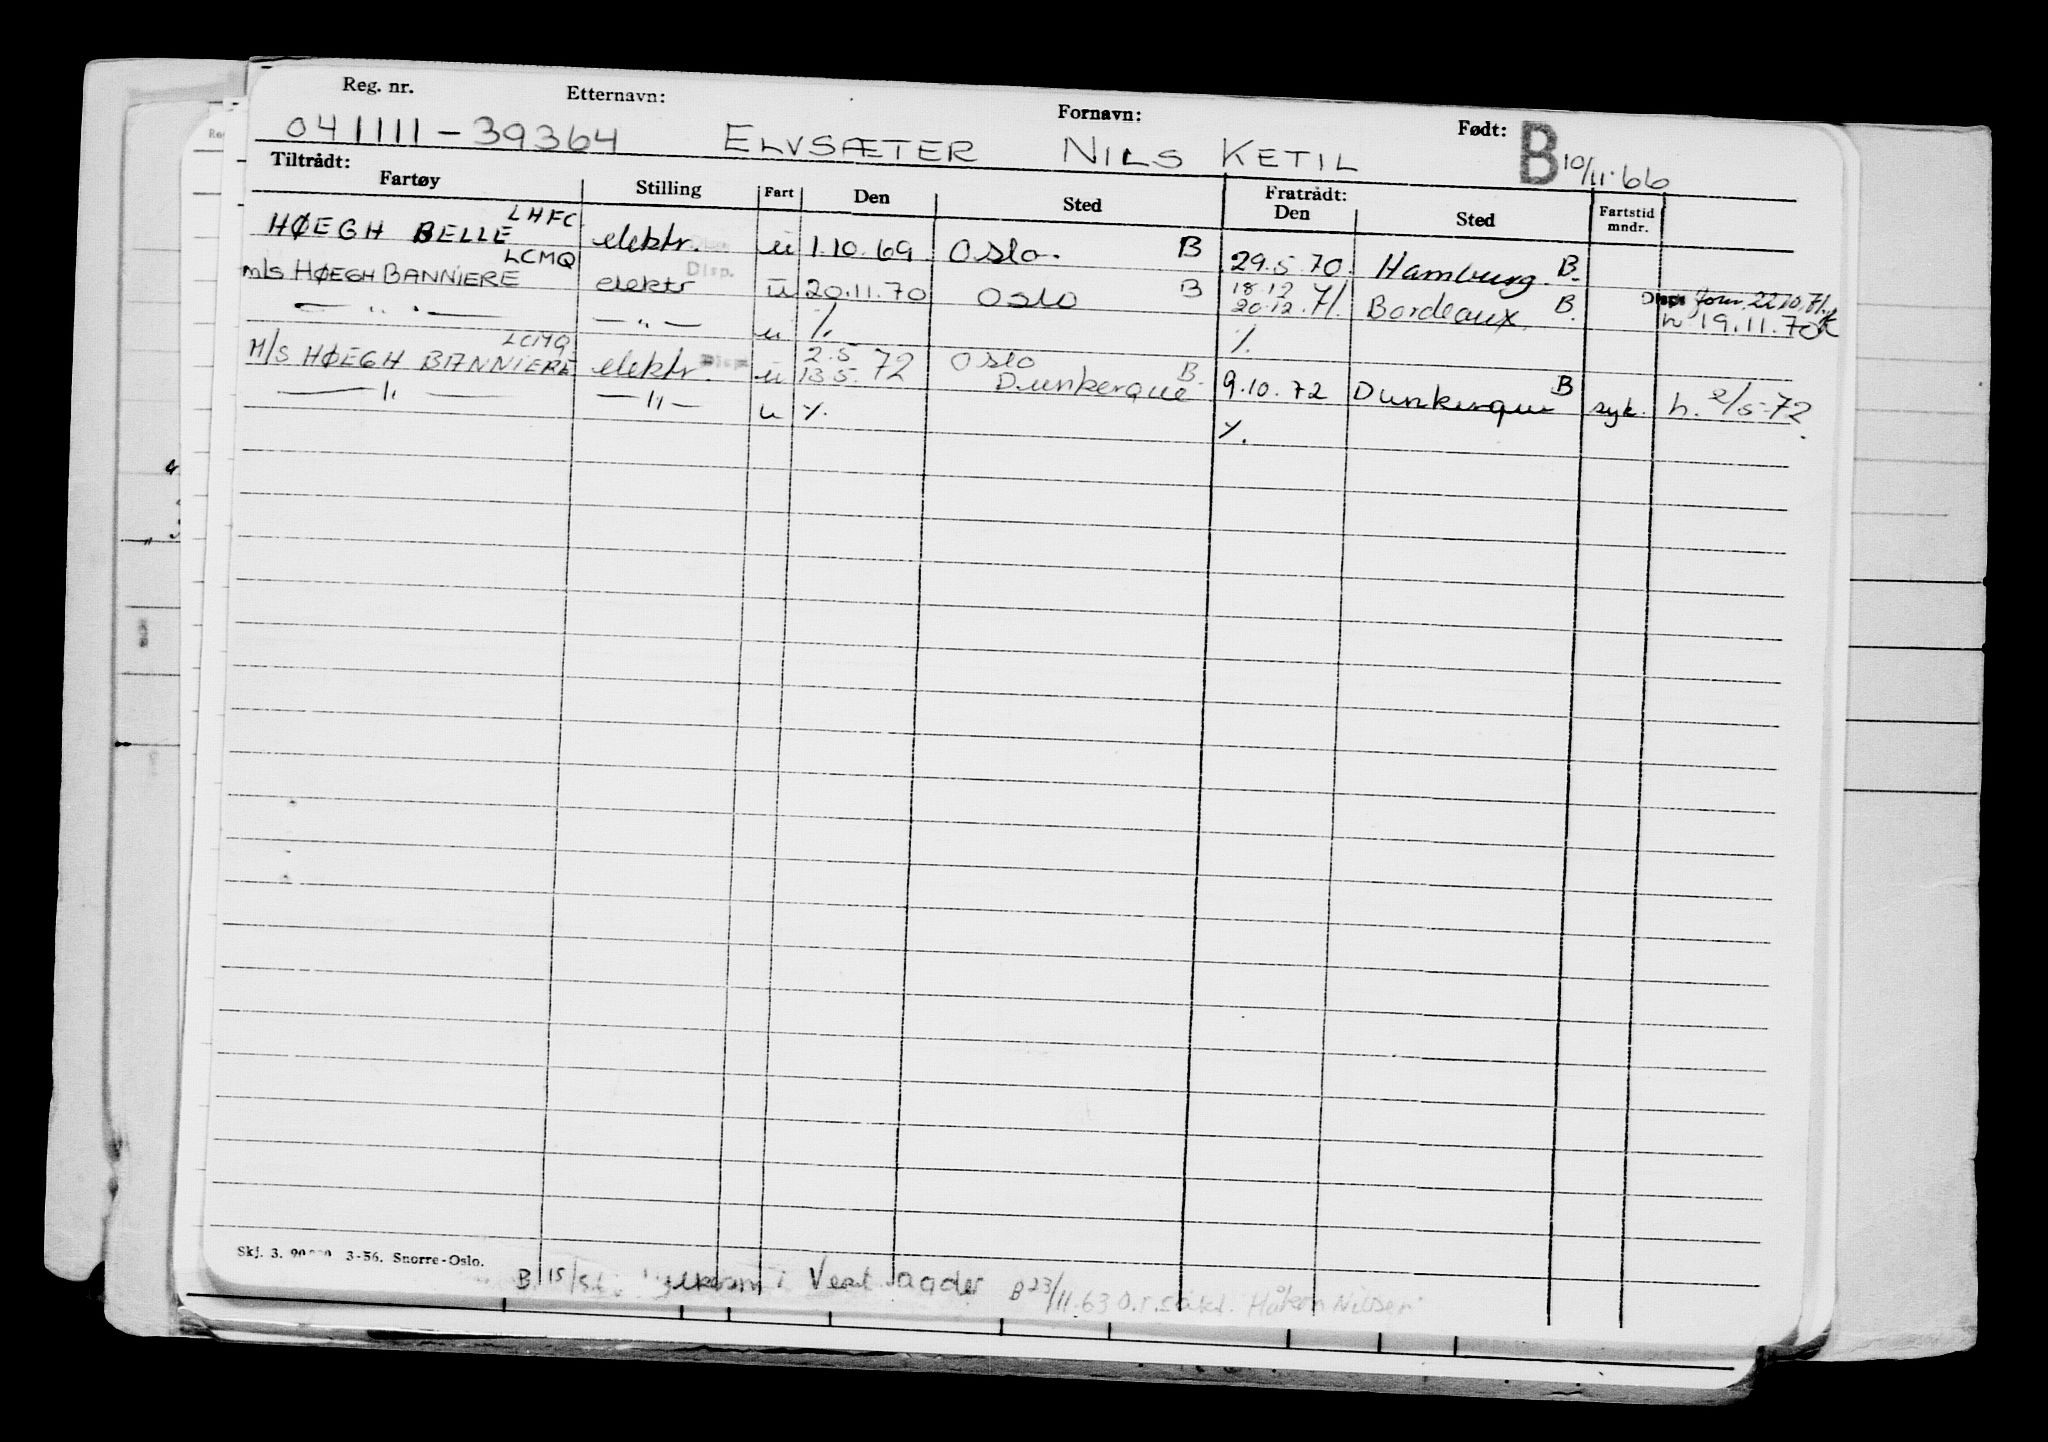 Reg. nr. Etternavn: Fornavn: Født:
041111-39364 ELVSÆTER NILS KETIL B 10/11.66
Tiltrådt: Fratrådt:
Fartøy Stilling Fart Den Sted Den Sted Fartstid mndr.
LHFC
HØEGH BELLE elektr. u 1.10.69 Oslo. B 29.5.70. Hamburg. B.
LCMQ Disp.
m/s HØEGH BANNIERE elektr u 20.11.70 Oslo B 18.12 20.12.71. Bordeaux B. 22.10.71.
— " — — " — u %. %. h 19.11.70
LCMQ Disp
M/S HØEGH BANNIERE elektr. u 2.5 13.5.72 Oslo Dunkerque B. 9.10.72 Dunkerque B syk. h. 2/5-72
— " — — " — u %. %.
Skj. 3. 3-56. Snorre-Oslo.
B 15/ i Vest Agder B 23/11.63 Håkon Nilsen